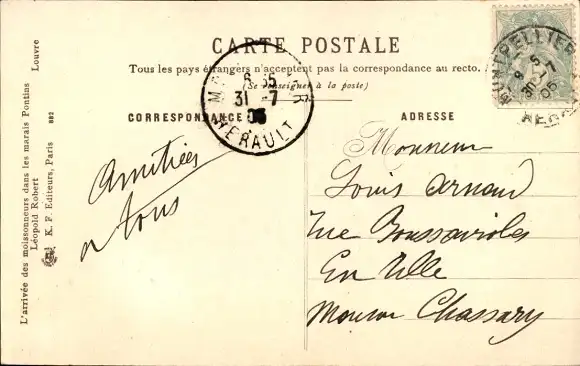 CARTE POSTALE
Tous les pays étrangers n'acceptent pas la correspondance au recto.
(Se renseigner à la poste)
CORRESPONDANCE
ADRESSE
6 35
31 -7
06
HERAULT
MONTPELLIER
8 5
31 -7
06
Amitiées
a tous
Monsieur
Louis Arnaud
Rue
En Ville
Maison Chassary
L'arrivée des moissonneurs dans les marais Pontins Louvre
Léopold Robert
K. F. Editeurs, Paris 882